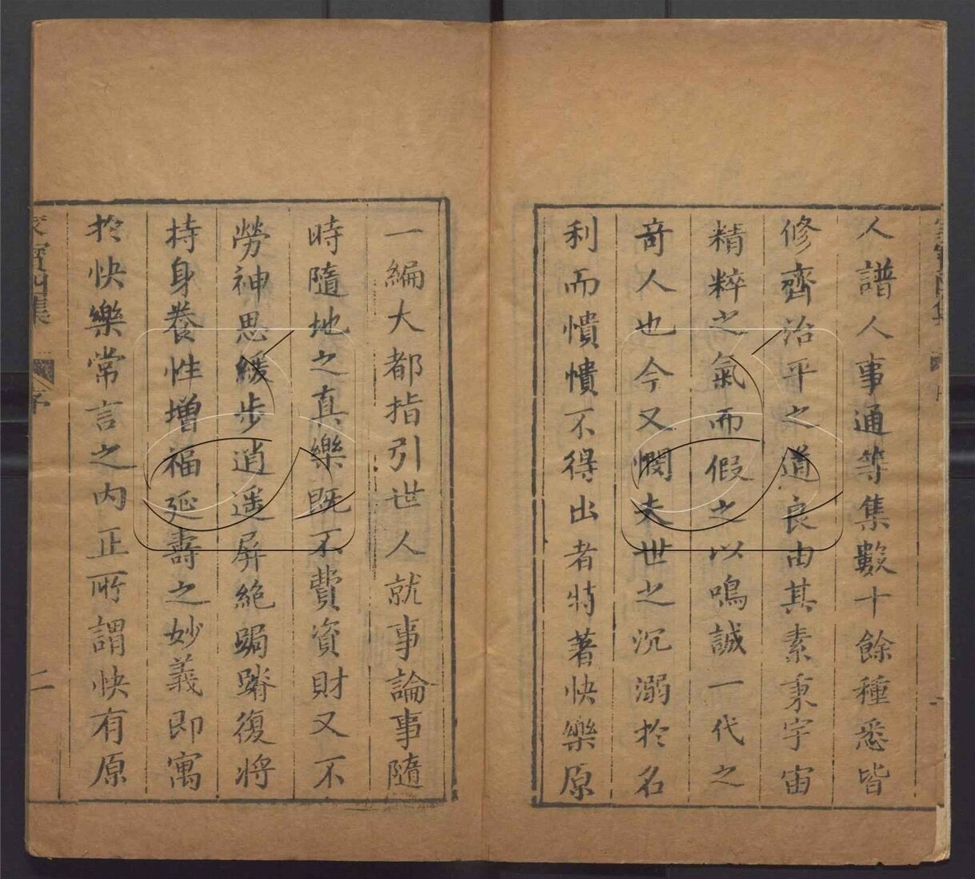 人譜人事通等集數十餘種悉皆
修齊治平之道良由其素秉宇宙
精粹之氣而假之以鳴誠一代之
竒人也今又憫夫世之沉溺於名
利而憒憒不得出者特著快樂原
一編大都指引世人就事論事隨
時隨地之真樂既不費資財又不
勞神思緩步逍遥屏絶跼蹐復將
持身養性增福延壽之妙義即寓
於快樂常言之内正所謂快有原
家寶四集
序
二